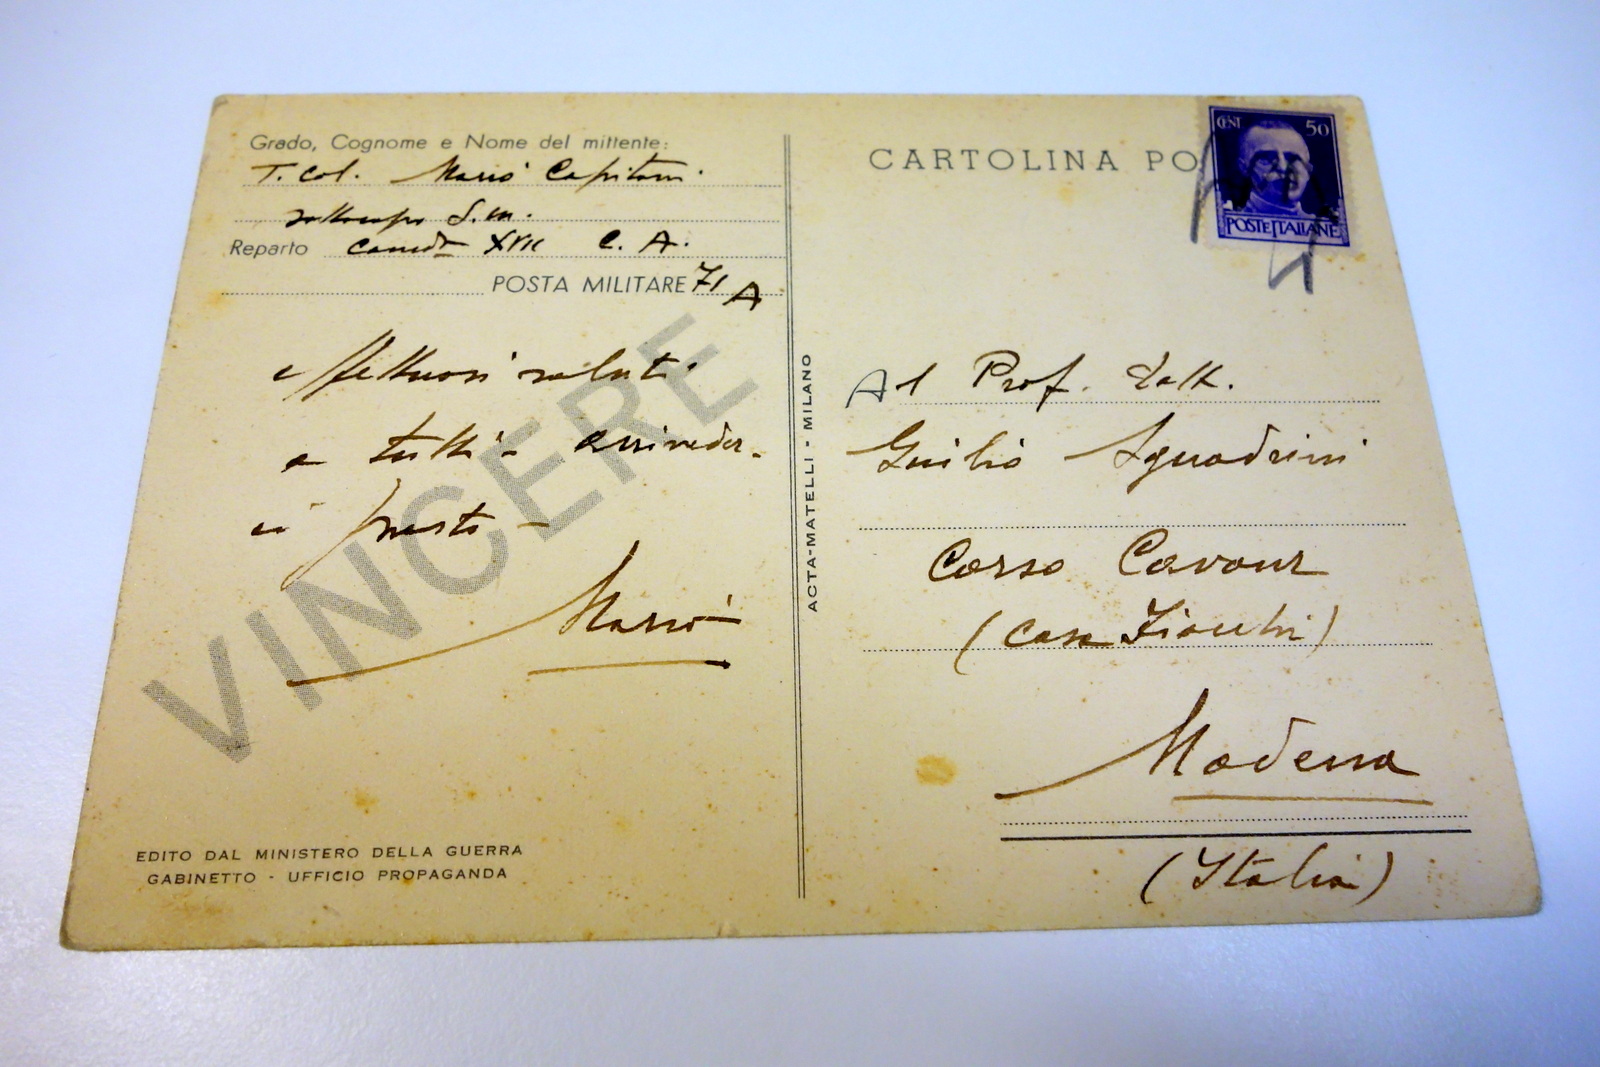 Grado, Cognome e Nome del mittente:
T. Col. Mario Capitani
sottocapo S.M.
Reparto Comdo XVII C. A.
POSTA MILITARE 71 A
VINCERE
Affettuosi saluti
a tutti - arriveder-
ci presto -
Mario
EDITO DAL MINISTERO DELLA GUERRA
GABINETTO - UFFICIO PROPAGANDA
ACTA-MATELLI - MILANO
CARTOLINA PO
CENT 50
POSTE ITALIANE
Al Prof. Dott.
Giulio Squadrini
Corso Cavour
(Casa Fiocchi)
Modena
(Italia)